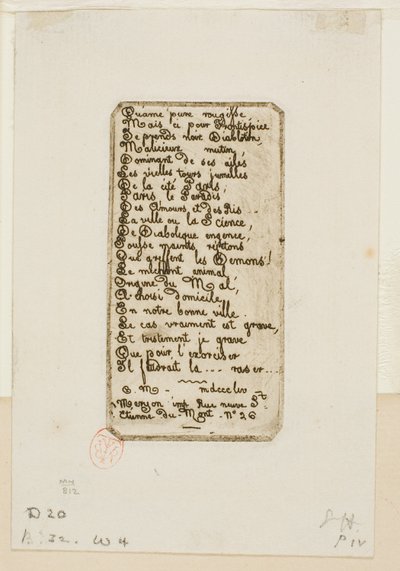 Qu'âme pure rougisse
Mais ci pour Frontispice
Je prends noir Diablotin,
Malicieux mutin,
Dominant de ses ailes
Les vielles tours jumelles
De la cité Paris,
Paris le Paradis
Des Amours et des Ris
La ville ou la Science,
De Diabolique engence,
Pousse maints rejetons
Que griffent les Demons!
Le mechant animal
Origine du Mal,
A choisi domicile
En notre bonne ville
Le cas vraiment est grave,
Et tristement je grave
Que pour l'exorciser
Il faudrait la ... raser...
C M - mdcccliv
Meryon imp Rue neuve St
Etienne du Mont - No 26
MH
812
D20
B. 32. W4
P IV